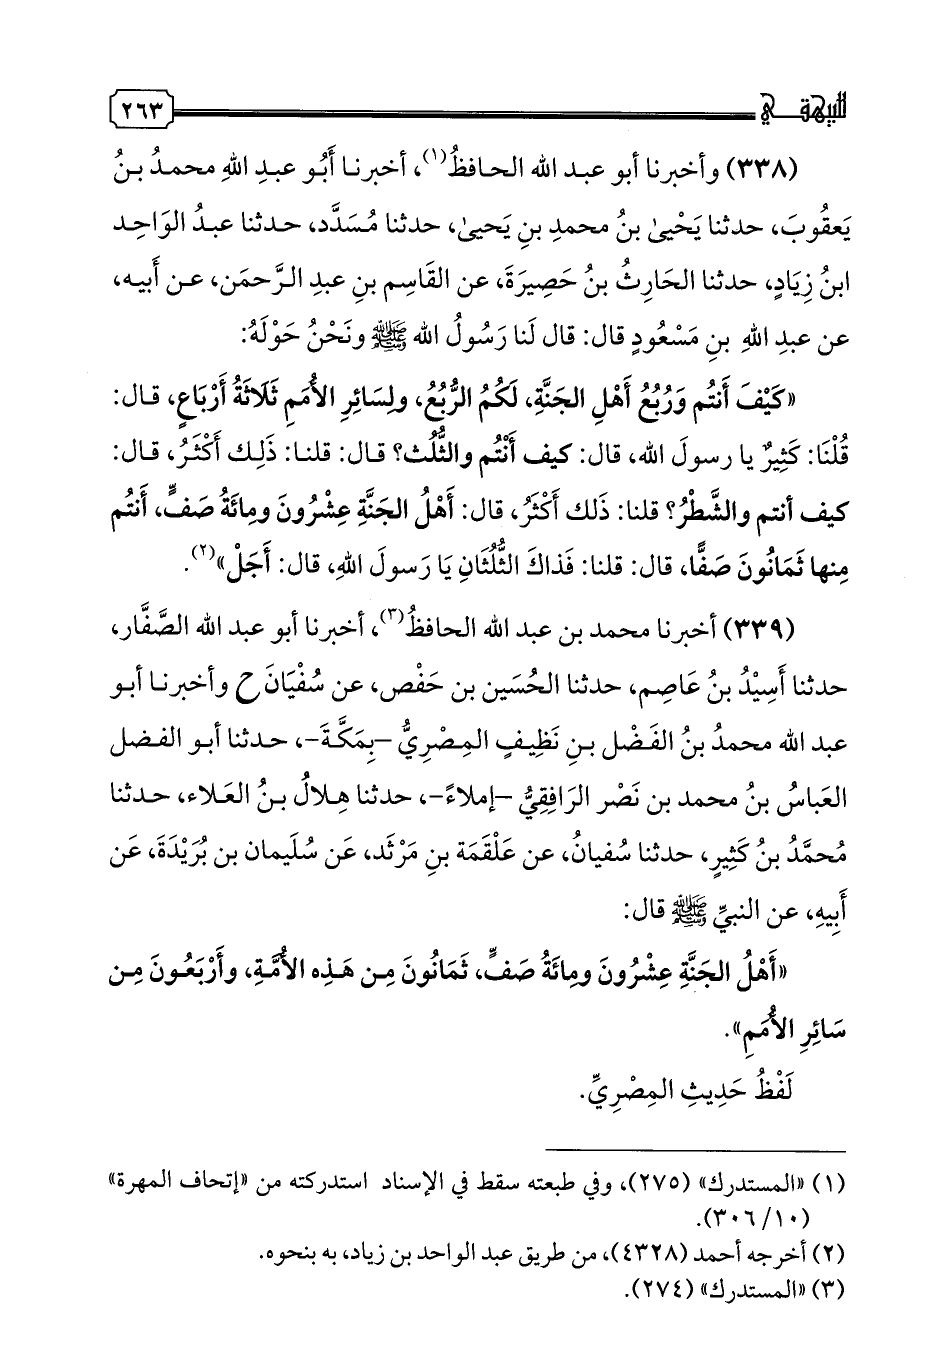 للبيهقي ٢٦٣
(٣٣٨) وأخبرنا أبو عبد الله الحافظُ(١)، أخبرنا أَبُو عبدِ اللهِ محمدُ بنُ
يَعقُوبَ، حدثنا يَحْيىٰ بنُ محمدِ بنِ يَحيىٰ، حدثنا مُسَدَّد، حدثنا عبدُ الوَاحِد
ابنُ زِيَادٍ، حدثنا الحَارِثُ بنُ حَصِيرَةَ، عن القَاسِم بنِ عبدِ الرَّحمَن، عن أَبيه،
عن عبدِ اللهِ بنِ مَسْعُودٍ قال: قال لَنا رَسُولُ الله ﷺ ونَحْنُ حَوْلَهُ:
«كَيْفَ أَنتُم وَرُبُعُ أَهْلِ الجَنَّةِ، لَكُمُ الرُّبُعُ، ولِسَائِرِ الأُمَمِ ثَلَاثَةُ أَرْبَاعٍ، قال:
قُلْنَا: كَثِيرٌ يا رسولَ الله، قال: كيف أَنْتُم والثُّلُث؟ قال: قلنا: ذَلِك أَكْثَرُ، قال:
كيف أنتم والشَّطْرُ؟ قلنا: ذَلك أَكْثَرُ، قال: أَهْلُ الجَنَّةِ عِشْرُونَ ومِائَةُ صَفٍّ، أَنتُم
مِنها ثَمَانُونَ صَفًّا، قال: قلنا: فَذاكَ الثُّلُثَانِ يَا رَسولَ اللهِ، قال: أَجَلْ»(٢).
(٣٣٩) أخبرنا محمد بن عبد الله الحافظُ(٣)، أخبرنا أبو عبد الله الصَّفَّار،
حدثنا أَسِيْدُ بنُ عَاصِم، حدثنا الحُسَين بن حَفْص، عن سُفْيَانَ ح وأخبرنا أبو
عبد الله محمدُ بنُ الفَضْل بنِ نَظِيفٍ المِصْرِيُّ –بِمَكَّةَ–، حدثنا أبو الفضل
العَباسُ بنُ محمد بن نَصْر الرَافِقِيُّ –إملاءً–، حدثنا هِلالُ بنُ العَلاء، حدثنا
مُحمَّدُ بنُ كَثِيرٍ، حدثنا سُفيانُ، عن عَلْقَمَة بنِ مَرْثَد، عَن سُلَيمان بن بُرَيْدَةَ، عَن
أَبِيهِ، عن النبيِّ ﷺ قال:
«أَهْلُ الجَنَّةِ عِشْرُونَ ومِائَةُ صَفٍّ، ثَمَانُونَ مِن هَذِه الأُمَّةِ، وأَرْبَعُونَ مِن
سَائِرِ الأُمَمِ».
لَفْظُ حَدِيثِ المِصْرِيِّ.
(١) «المستدرك» (٢٧٥)، وفي طبعته سقط في الإسناد استدركته من «إتحاف المهرة»
(١٠/ ٣٠٦).
(٢) أخرجه أحمد (٤٣٢٨)، من طريق عبد الواحد بن زياد، به بنحوه.
(٣) «المستدرك» (٢٧٤).